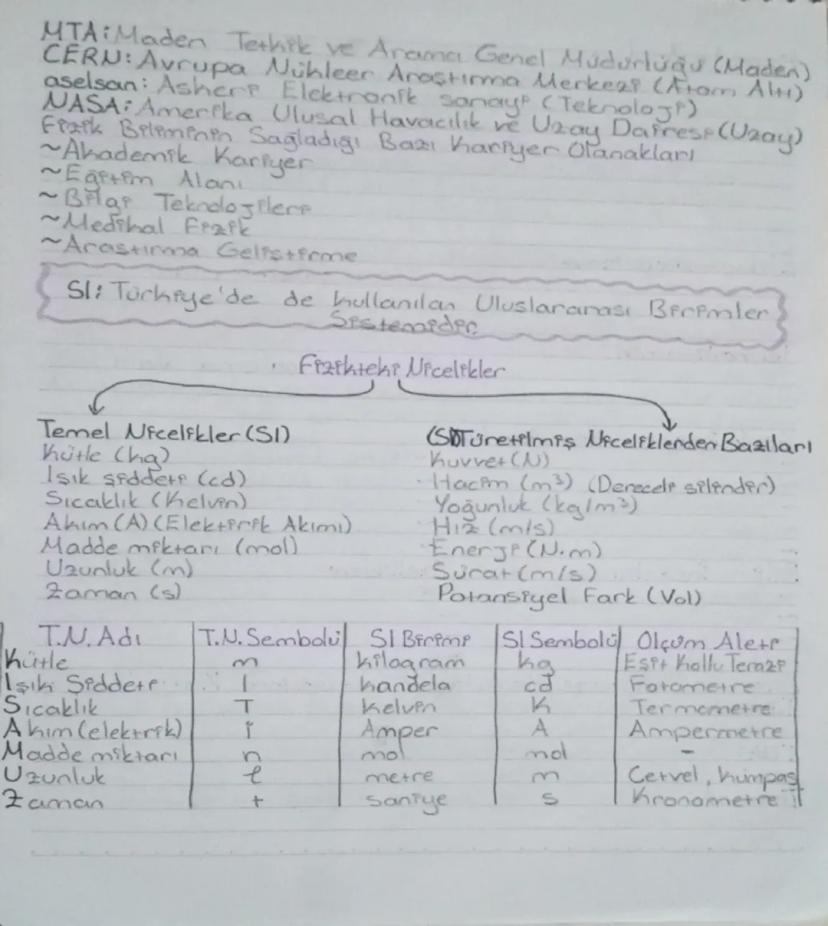 MTA: Maden Tetkik ve Arama Genel Müdürlüğü (Maden)
CERN: Avrupa Nükleer Araştırma Merkezi (Atom Altı)
aselsan: Askeri Elektronik Sanayi (Teknoloji)
NASA: Amerika Ulusal Havacılık ve Uzay Dairesi (Uzay)
Fizik Biliminin Sağladığı Bazı Kariyer Olanakları
~Akademik Kariyer
~Eğitim Alanı
~Bilgi Teknolojileri
~Medikal Fizik
~Araştırma Geliştirme
SI: Türkiye'de de kullanılan Uluslararası Birimler
Sistemidir
Fizikteki Nicelikler
Temel Nicelikler (SI)
Kütle (kg)
Işık şiddeti (cd)
Sıcaklık (Kelvin)
Akım (A) (Elektirik Akımı)
Madde miktarı (mol)
Uzunluk (m)
Zaman (s)
(SI) Türetilmiş Niceliklerden Bazıları
Kuvvet (N)
Hacim (m³) (Dereceli silindir)
Yoğunluk (kg/m³)
Hız (m/s)
Enerji (N.m)
Sürat (m/s)
Potansiyel Fark (Vol)
T.N. Adı T.N. Sembolü SI Birimi SI Sembolü Ölçüm Aleti
Kütle m kilogram kg Eşit Kollu Terazi
Işık Şiddeti I kandela cd Fotometre
Sıcaklık T Kelvin K Termometre
Akım (elektrik) i Amper A Ampermetre
Madde miktarı n mol mol -
Uzunluk ℓ metre m Cetvel, kumpas
Zaman t saniye s Kronometre